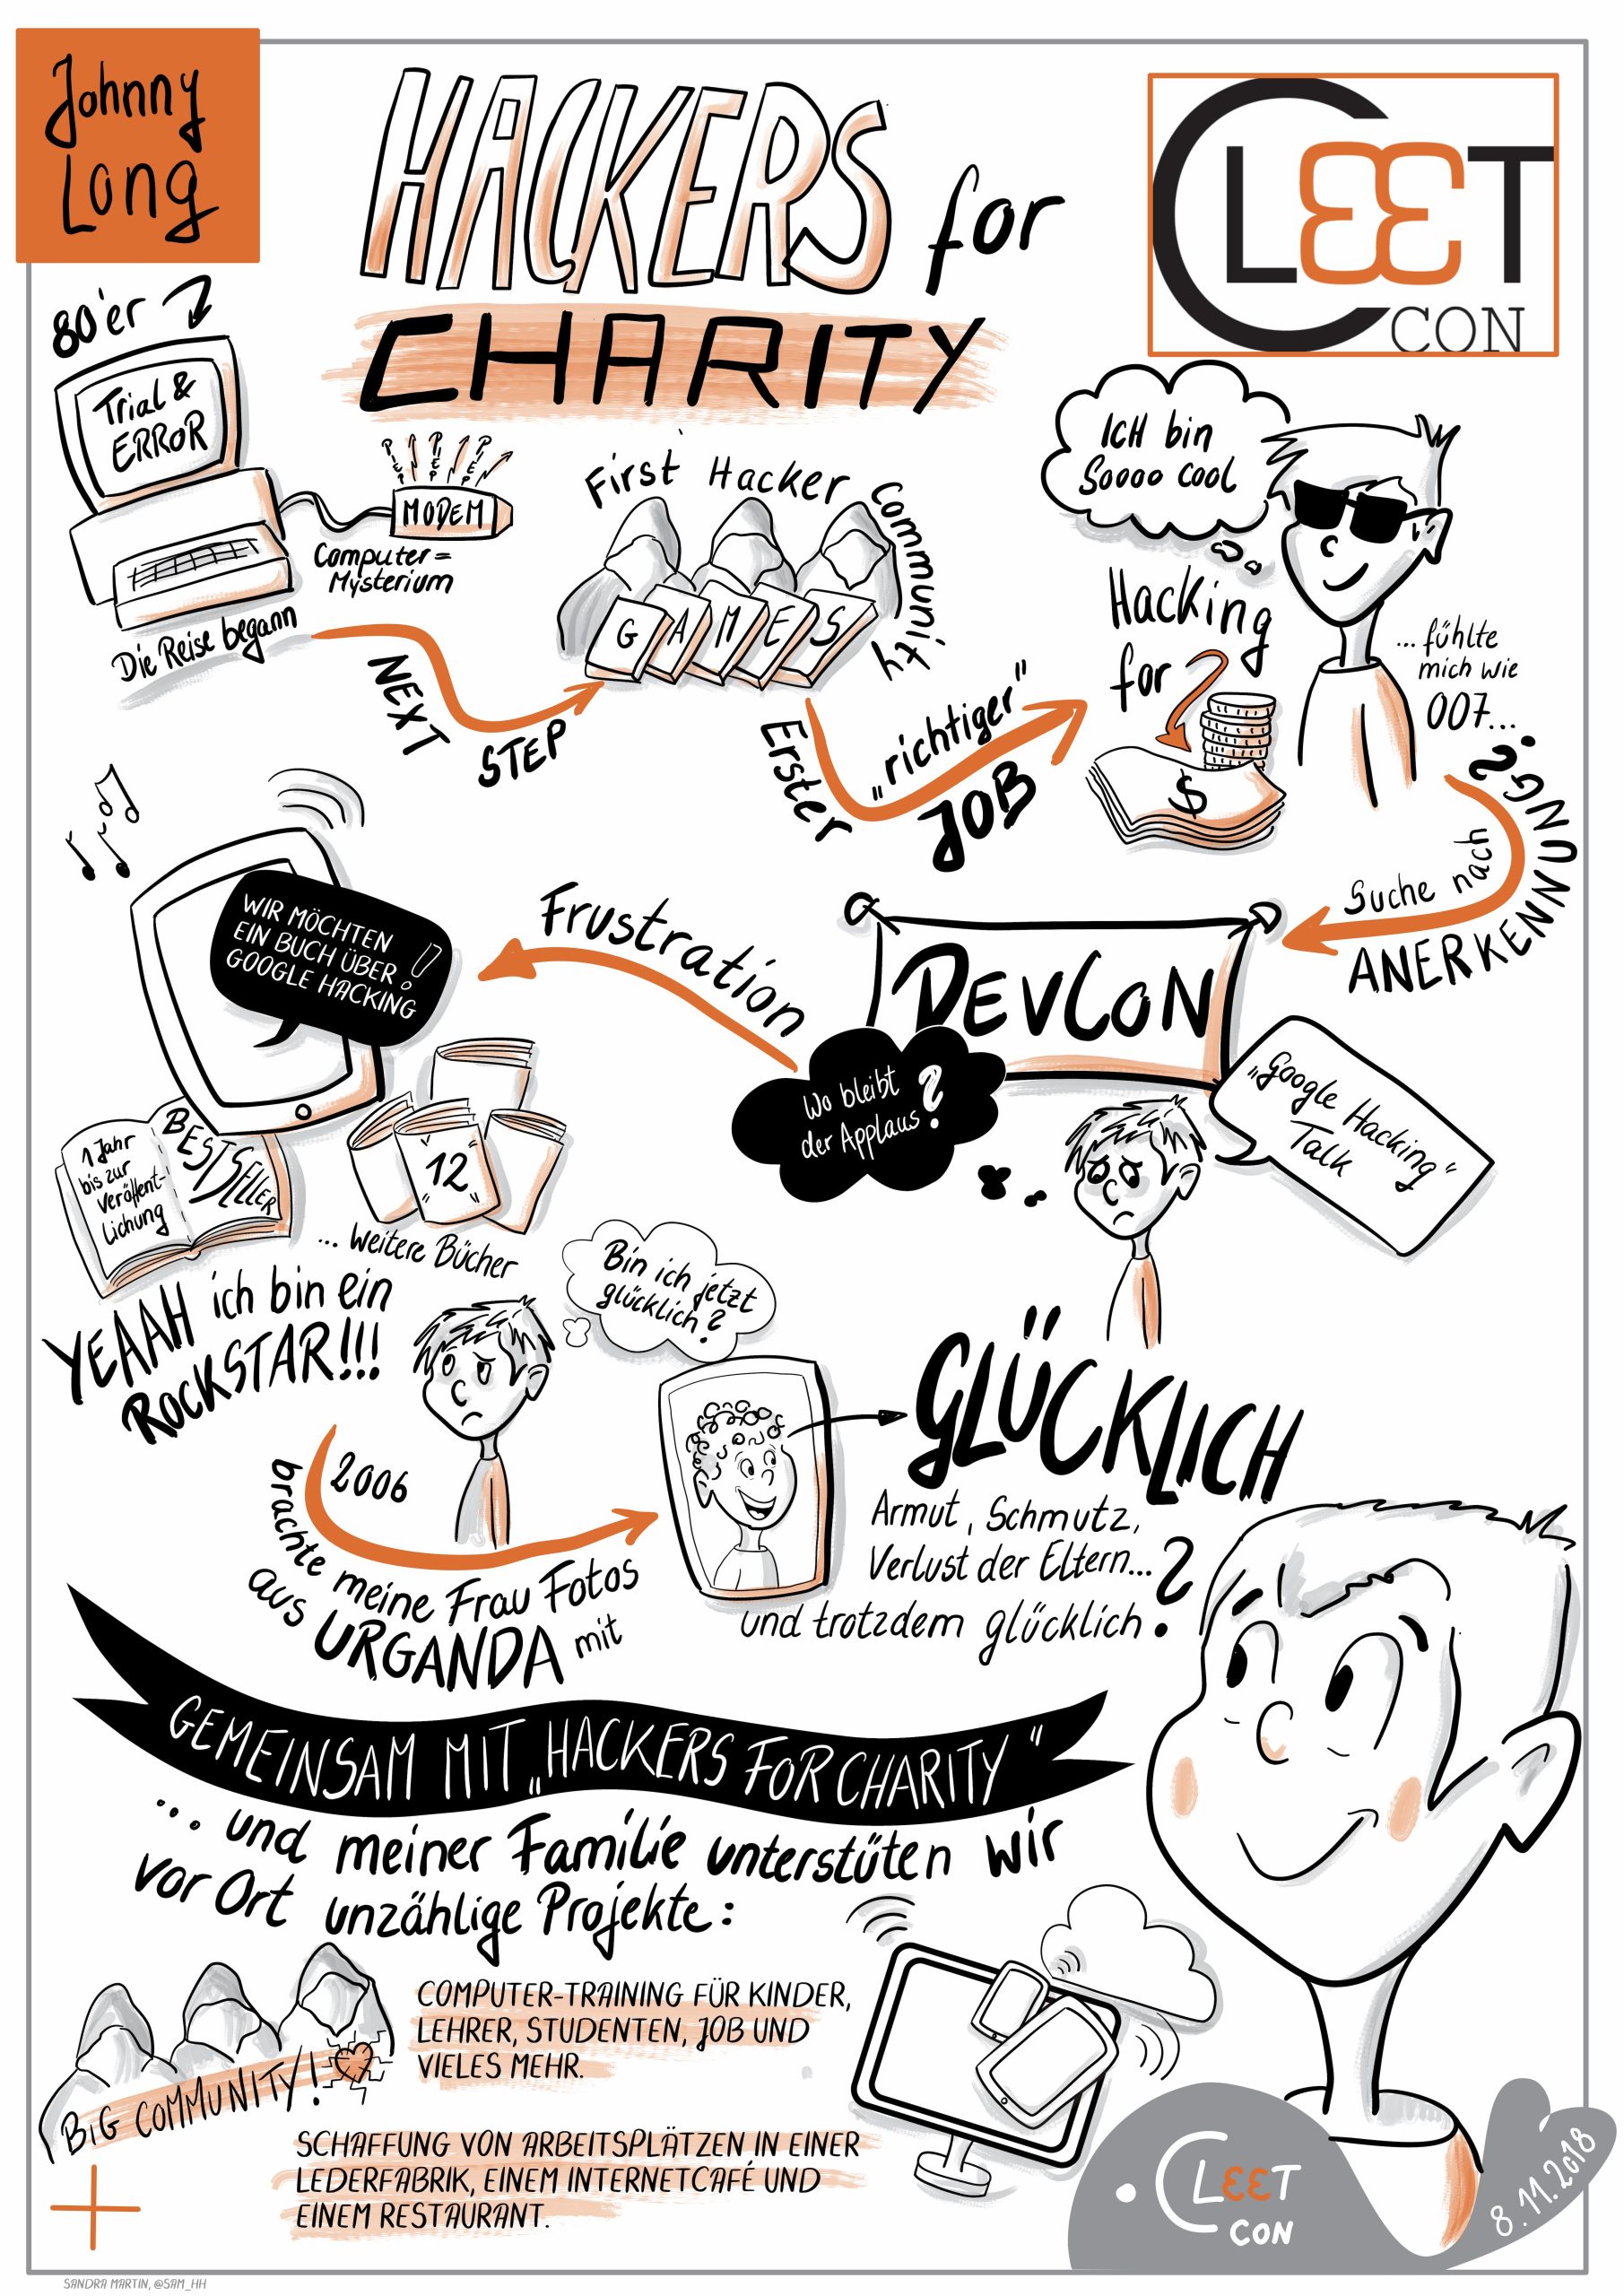 Johnny
Long
HACKERS for
CHARITY
CLEET
CON
80'er
Trial &
ERROR
PIEP PIEP PIEP
MODEM
Computer =
Mysterium
Die Reise begann
NEXT
STEP
First Hacker Community
GAMES
Erster
„richtiger"
JOB
ICH bin
Soooo cool
Hacking
for
$
... fühlte
mich wie
007...
Suche nach
ANERKENNUNG?
DEVCON
„Google Hacking"
Talk
Wo bleibt
der Applaus?
Frustration
WIR MÖCHTEN
EIN BUCH ÜBER
GOOGLE HACKING!!
1 Jahr
bis zur
Veröffent-
lichung
BESTSELLER
"12"
... weitere Bücher
YEAAH ich bin ein
ROCKSTAR!!!
Bin ich jetzt
glücklich?
2006
brachte meine Frau Fotos
aus URGANDA mit
GLÜCKLICH
Armut, Schmutz,
Verlust der Eltern...
und trotzdem glücklich?
GEMEINSAM MIT „HACKERS FOR CHARITY"
... und meiner Familie unterstüten wir
vor Ort unzählige Projekte:
BIG COMMUNITY!
COMPUTER-TRAINING FÜR KINDER,
LEHRER, STUDENTEN, JOB UND
VIELES MEHR.
SCHAFFUNG VON ARBEITSPLÄTZEN IN EINER
LEDERFABRIK, EINEM INTERNETCAFÉ UND
EINEM RESTAURANT.
CLEET
CON
8.11.2018
SANDRA MARTIN, @SAM_HH